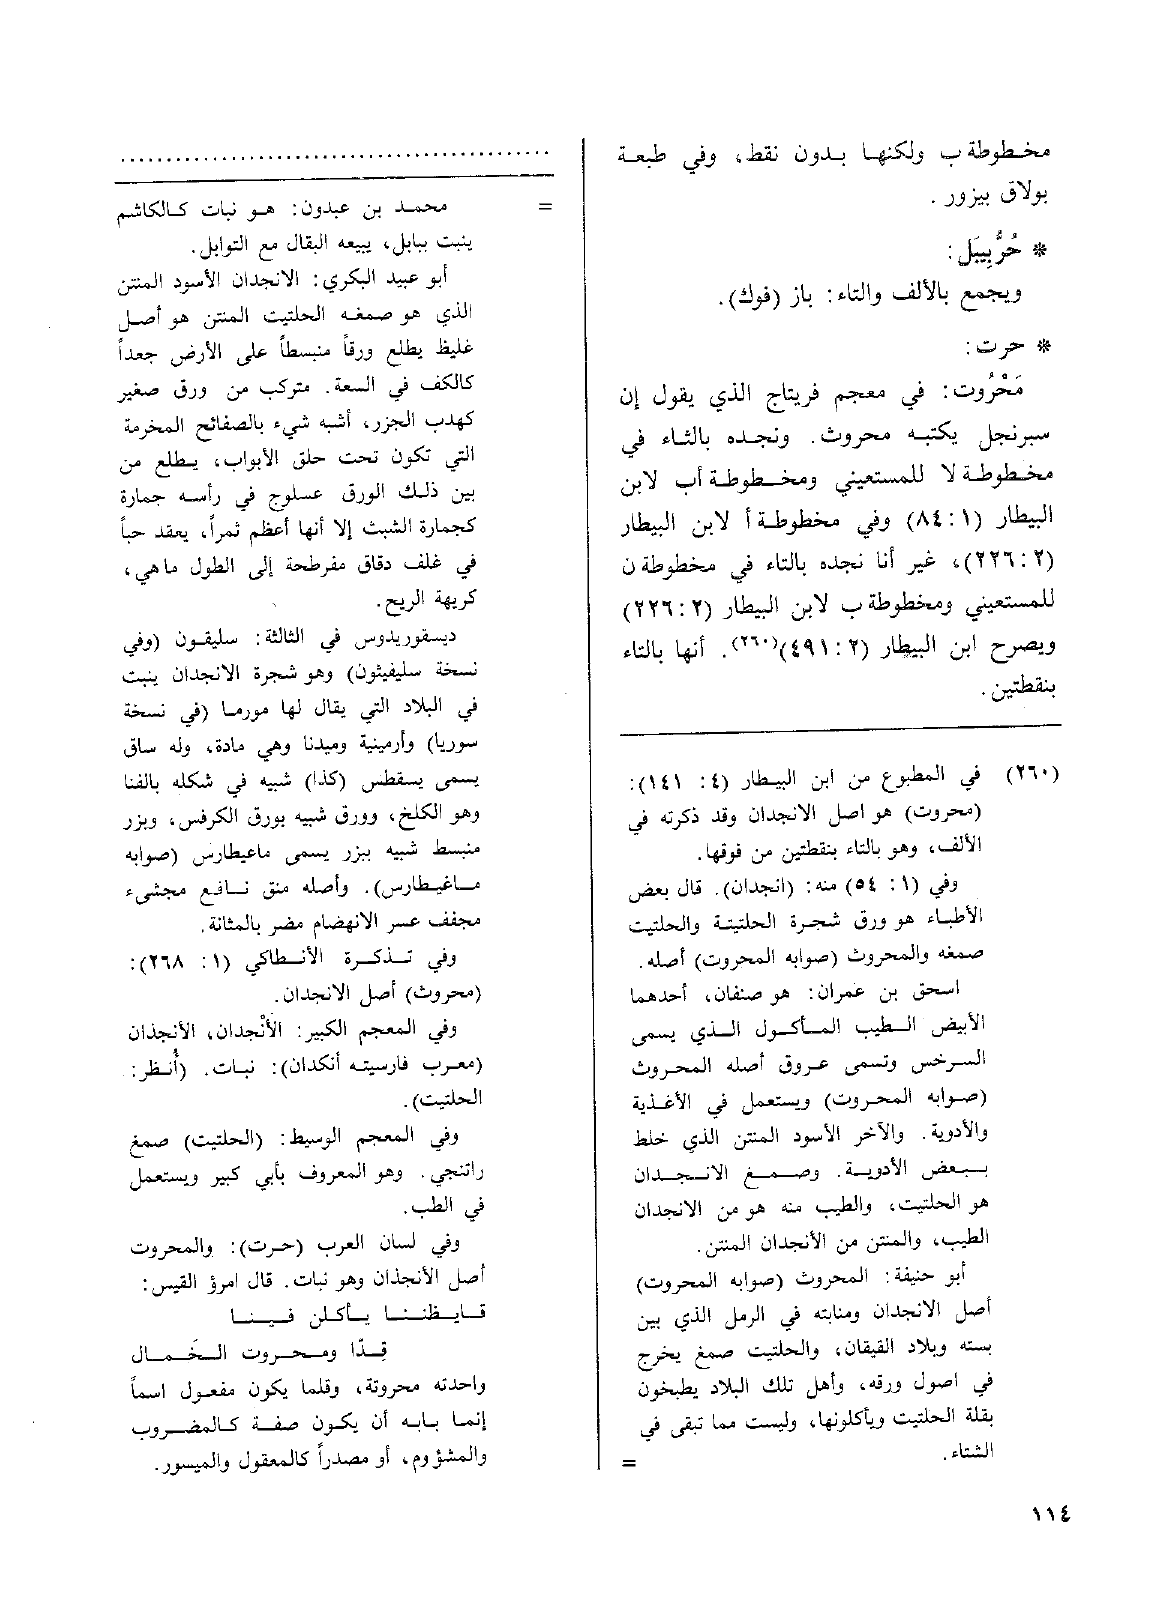 مخطوطة ب ولكنها بدون نقط، وفي طبعة
بولاق بيزور.
* حُرُّبِيبَل:
ويجمع بالألف والتاء: باز (فوك).
* حرت:
مَحْرُوت: في معجم فريتاج الذي يقول إن
سبرنجل يكتبه محروث. ونجده بالثاء في
مخطوطة لا للمستعيني ومخطوطة أب لابن
البيطار (١: ٨٤) وفي مخطوطة أ لابن البيطار
(٢: ٢٢٦)، غير أنا نجده بالتاء في مخطوطة ن
للمستعيني ومخطوطة ب لابن البيطار (٢: ٢٢٦)
ويصرح ابن البيطار (٢: ٤٩١)(٢٦٠). أنها بالتاء
بنقطتين.
(٢٦٠) في المطبوع من ابن البيطار (٤: ١٤١):
(محروت) هو اصل الانجدان وقد ذكرته في
الألف، وهو بالتاء بنقطتين من فوقها.
وفي (١: ٥٤) منه: (انجدان). قال بعض
الأطباء هو ورق شجرة الحلتيتة والحلتيت
صمغه والمحروث (صوابه المحروت) أصله.
اسحق بن عمران: هو صنفان، أحدهما
الأبيض الطيب المأكول الذي يسمى
السرخس وتسمى عروق أصله المحروث
(صوابه المحروت) ويستعمل في الأغذية
والأدوية. والآخر الأسود المنتن الذي خلط
ببعض الأدوية. وصمغ الانجدان
هو الحلتيت، والطيب منه هو من الانجدان
الطيب، والمنتن من الأنجدان المنتن.
أبو حنيفة: المحروث (صوابه المحروت)
أصل الانجدان ومنابته في الرمل الذي بين
بسته وبلاد القيقان، والحلتيت صمغ يخرج
في اصول ورقه، وأهل تلك البلاد يطبخون
بقلة الحلتيت ويأكلونها، وليست مما تبقى في
الشتاء. =
= محمد بن عبدون: هو نبات كالكاشم
ينبت ببابل، يبيعه البقال مع التوابل.
أبو عبيد البكري: الانجدان الأسود المنتن
الذي هو صمغه الحلتيت المنتن هو أصل
غليظ يطلع ورقاً منبسطاً على الأرض جعداً
كالكف في السعة. متركب من ورق صغير
كهدب الجزر، أشبه شيء بالصفائح المخرمة
التي تكون تحت حلق الأبواب، يطلع من
بين ذلك الورق عسلوج في رأسه جمارة
كجمارة الشبث إلا أنها أعظم ثمراً، يعقد حباً
في غلف دقاق مفرطحة إلى الطول ماهي،
كريهة الريح.
ديسقوريدوس في الثالثة: سليقون (وفي
نسخة سليفيثون) وهو شجرة الانجدان ينبت
في البلاد التي يقال لها مورما (في نسخة
سوريا) وأرمينية وميدنا وهي مادة، وله ساق
يسمى يسقطس (كذا) شبيه في شكله بالفنا
وهو الكلخ، وورق شبيه بورق الكرفس، وبزر
منبسط شبيه ببزر يسمى ماعيطارس (صوابه
ماغيطارس). وأصله منق نافع مجشيء
مجفف عسر الانهضام مضر بالمثانة.
وفي تذكرة الأنطاكي (١: ٢٦٨):
(محروث) أصل الانجدان.
وفي المعجم الكبير: الأنْجدان، الأنجذان
(معرب فارسيته أنكدان): نبات. (أُنظر:
الحلتيت).
وفي المعجم الوسيط: (الحلتيت) صمغ
راتنجي. وهو المعروف بأبي كبير ويستعمل
في الطب.
وفي لسان العرب (حرت): والمحروت
أصل الأنجذان وهو نبات. قال امرؤ القيس:
قايظننا يأكلن فينا
قِدّا ومحروت الخَمال
واحدته محروتة، وقلما يكون مفعول اسماً
إنما بابه أن يكون صفة كالمضروب
والمشؤوم، أو مصدراً كالمعقول والميسور.
١١٤